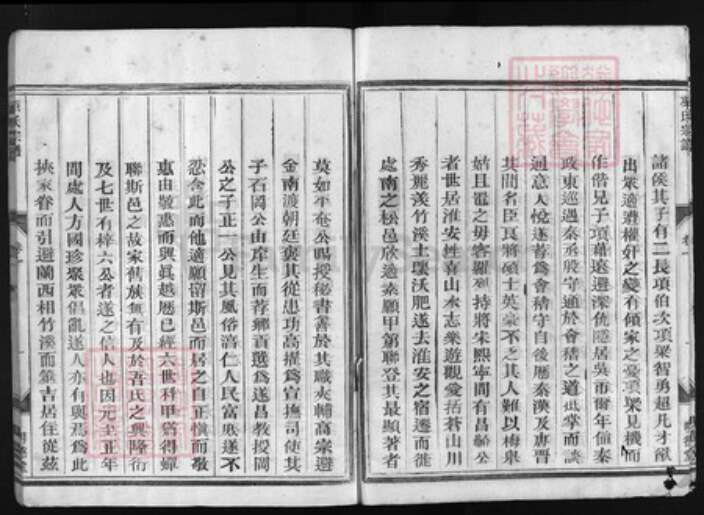 項氏宗譜
諸侯其子有二長項伯次項梁智勇超凡才猷
出眾適遭權奸之變有傾家之憂項梁見機而
作偕兄子項籍遠避深仇隱居吳市爾年值秦
政東巡過秦丞殷守通於會稽之道抵掌而談
通意大悅遂薦為會稽守自後歷秦漢及唐晉
其間名臣良將碩士英豪不乏其人難以枚舉
姑且置之毋容羅列持將宋熙寧間有昌齡公
者世居淮安性喜山水志樂遊觀愛括蒼山川
秀麗羨竹溪土壤沃肥遂去淮安之宿遷而徙
處南之松邑欣適素願甲第聯登其最顯著者
莫如平菴公賜授秘書善於其職夾輔高宗避
金南渡朝廷褒其從忠功高擢為宣撫司使其
子石岡公由岸生而荐鄉貢選為遂昌教授岡
公之子正一公見其風俗淳仁人民富庶遂不
忍舍此而他適願留斯邑而居之自正慎而敬
惠由敬惠而興真越歷已經六世科甲第得蟬
聯斯邑之故家舊族無有及於吾氏之興隆衍
及七世有梓六公者遂之信人也因元至正年
間處人方國珍聚眾倡亂遂人亦有與焉為此
挾家眷而引避蘭西相竹溪而築吉居住從茲
項氏宗譜
卷一